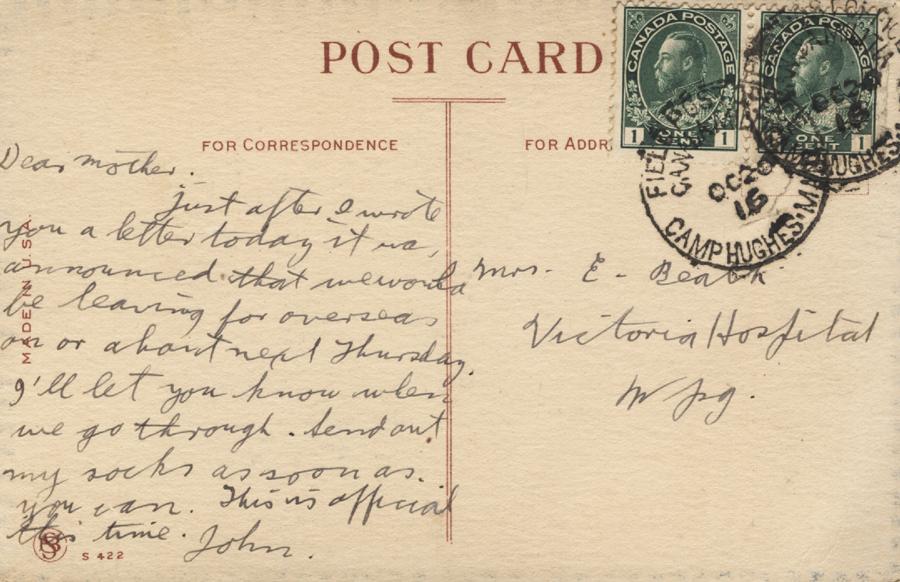 POST CARD
FOR CORRESPONDENCE
FOR ADDR
CANADA POSTAGE
1 ONE 1
CANADA POSTAGE
1 ONE CENT 1
FIELD POST
OC 20
16
CAMP HUGHES. MAN
OC 20
16
CAMP HUGHES.
Dear Mother.
Just after I wrote
you a letter today it wa,
announced that we would
be leaving for overseas
on or about next Thursday.
I'll let you know when
we go through. Send out
my socks as soon as
you can. This is official
this time. John.
Mrs. E. Beatt
Victoria Hospital
Wpg.
MADE IN U.S.A.
S 422